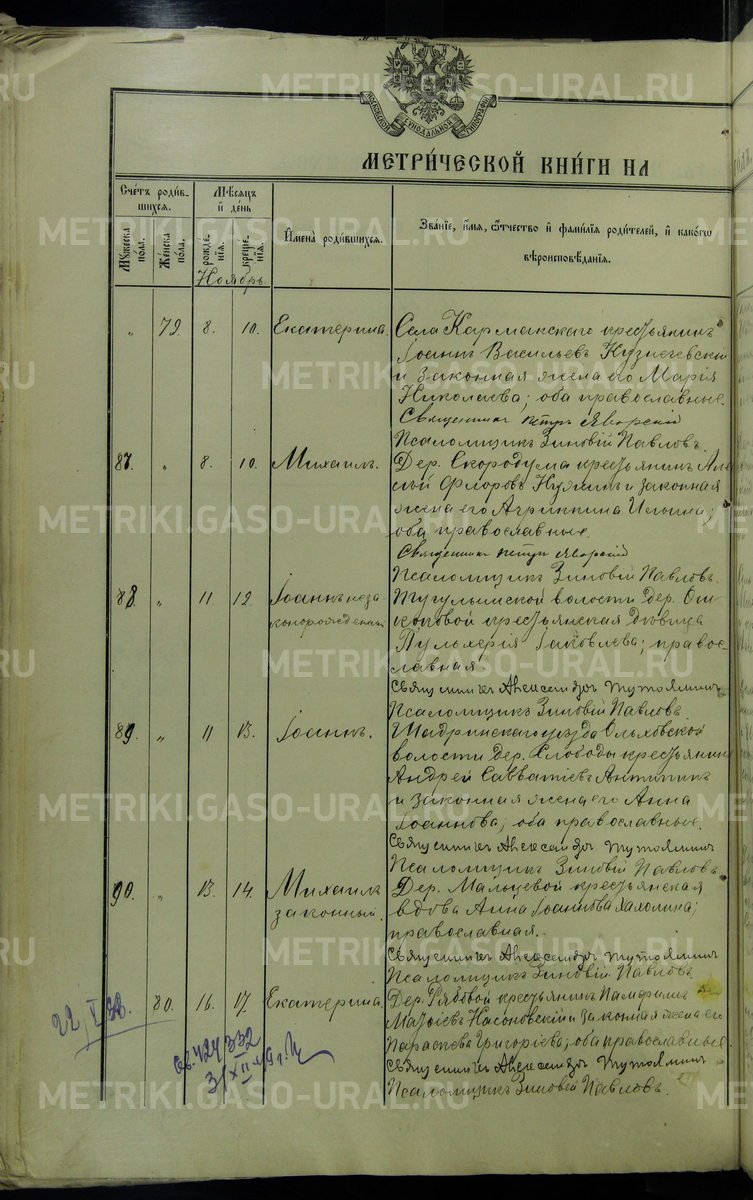 METRIKI.GASO-URAL.RU
МОСКОВСКОЙ СѴНОДАЛЬНОЙ ТИПОГРАФІИ
МЕТРИ́ЧЕСКОЙ КНИ́ГИ НА
Сче́тъ роди́в-
шихся.
Мꙋжеска
по́ла.
Же́нска
по́ла.
Мѣ́сяцъ
и̂ де́нь
рожде-
нія.
креще-
нія.
И̂мена̀ роди́вшихся.
Зва́ніе, и̂́мя, ѻ̂́тчество и̂ фами́лія роди́телей, и̂ како́гѡ
вѣроисповѣ́данія.
Ноябрь
„ 79. 8. 10. Екатерина. Села Кармакскаго крестьянинъ
Іоаннъ Васильевъ Кузнечевскій
и законная жена его Марія
Николаева; оба православные.
Священникъ Петръ Яворскій
Псаломщикъ Зиновій Павловъ.
87. „ 8. 10. Михаилъ. Дер. Скородума крестьянинъ Але
Флоровъ и законная
жена его Агриппина Ильина;
оба православные.
Священникъ Петръ Яворскій
Псаломщикъ Зиновій Павловъ.
88. „ 11 12 Іоаннъ неза
конорожденный Тугулымской волости Дер. Ош
коковой крестьянская Дѣвица
Пульхерія Іаковлева; правос-
лавная.
Священникъ Александръ Тутолминъ
Псаломщикъ Зиновій Павловъ.
89. „ 11 13. Іоаннъ. Шадринскаго уѣзда Ольховской
волости Дер. Слободы крестьянинъ
Андрей Савватіевъ Антипинъ
и законная жена его Анна
Іоаннова; оба православные.
Священникъ Александръ Тутолминъ
Псаломщикъ Зиновій Павловъ
90. „ 13. 14. Михаилъ
законный. Дер. Мальцевой крестьянская
вдова Анна Іоаннова Халолина;
православная.
Священникъ Александръ Тутолминъ
Псаломщикъ Зиновій Павловъ
80. 16. 17. Екатерина Дер. Рябовой крестьянинъ Памфилъ
Матѳіевъ Насоновскій и законная жена его
Параскева Григоріева; оба православные.
Священникъ Александръ Тутолминъ
Псаломщикъ Зиновій Павловъ.
22